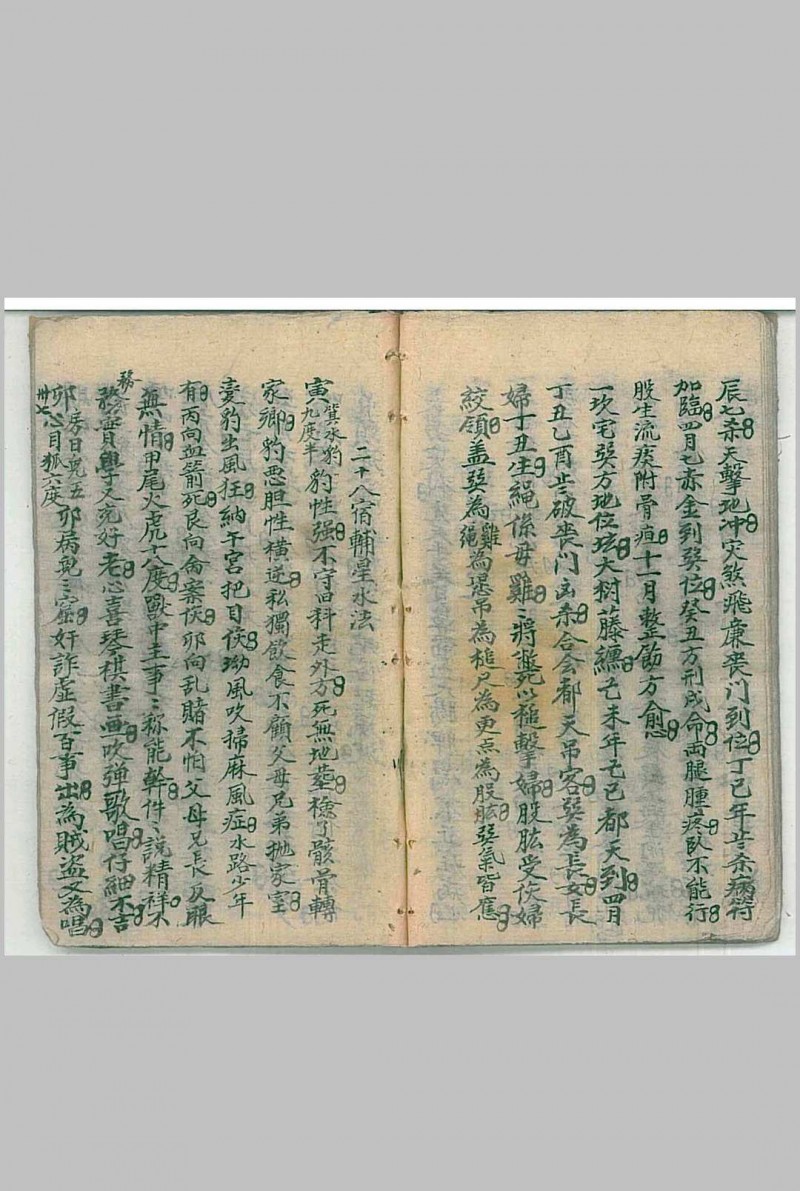 辰七杀天擊地冲灾煞飛廉喪门到位丁巳年七杀病符
加臨四月七赤金到癸位癸丑方刑戌命両腿腫疼臥不能行
股生流痰附骨疽十一月整飭方愈
一坎宅癸方地位大树藤纏己未年己巳都天到四月
丁丑乙酉七破喪门凶杀合会都天吊客癸為長女長
婦丁丑生繩係母雞雞將斃以槌擊婦股肱受伤婦
絞領盖癸為雞為繩為吊為槌尺為更点為股肱癸氣皆應
二十八宿輔星水法
寅箕水豹九度半豹性强不守旧科走外方死無地塟檢了骸骨轉
家郷豹恶胆性横逆私獨飲食不顧父母兄弟抛家室
妻豹出風狂納午宮把目伤坳風吹掃麻風症水路少年
有丙向血箭死艮向命案伤卯向乱賭不怕父母兄長反眼
無情甲尾火虎十八度獸中主事事称能幹件件說精祥不
務實學文充好老心喜琴棋書画吹弹歌唱仔細不吉
務
卯房日兔五心月狐六度卯病兔兔窟奸詐虚假百事出為賊盗又為唱
卅七